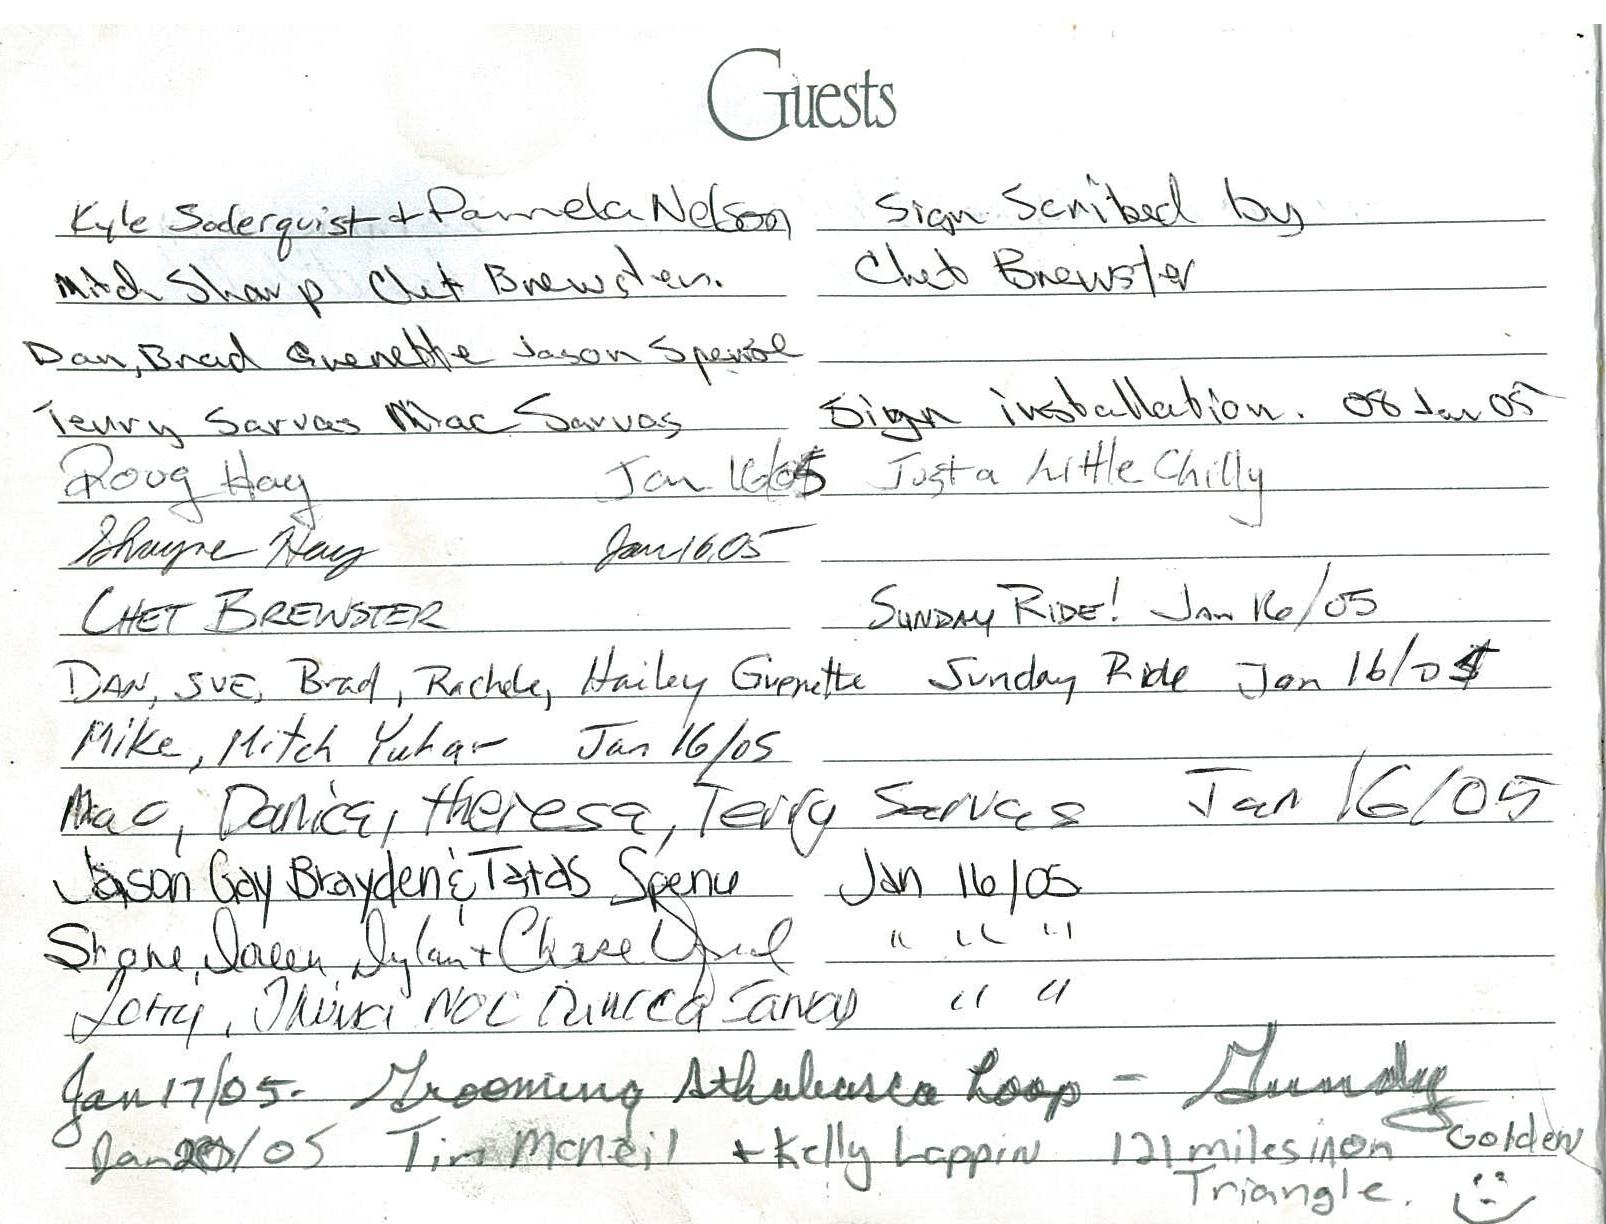 Guests
Kyle Soderquist + Pamela Nelson Sign Scribed by
Mitch Sharp Chet Brewster. Chet Brewster
Dan, Brad Guenette Jason Spence
Terry Sarvas Mac Sarvas Sign installation. 08 Jan 05
Doug Hay Jan 16/05 Just a Little Chilly
Shayne Hay Jan 16, 05
CHET BREWSTER SUNDAY RIDE! Jan 16/05
DAN, SUE, Brad, Rachele, Hailey Guenette Sunday Ride Jan 16/05
Mike, Mitch Yuhar Jan 16/05
Mac, Danica, Theresa, Terry Sarvas Jan 16/05
Jason Gay Brayden & Spence Jan 16/05
Shane, Dylan + Chase " " "
" "
Jan 17/05. Grooming Athabasca Loop - Gundy
Jan 20/05 Tim McNeil + Kelly Lappin 121 miles in on Golden
Triangle.